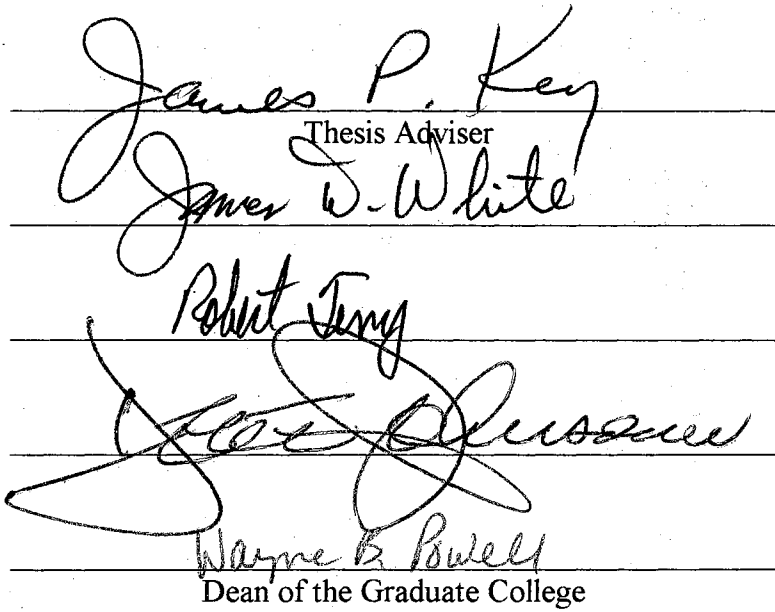 James P. Key
Thesis Adviser
James D. White
Robert Terry
Wayne B. Powell
Dean of the Graduate College